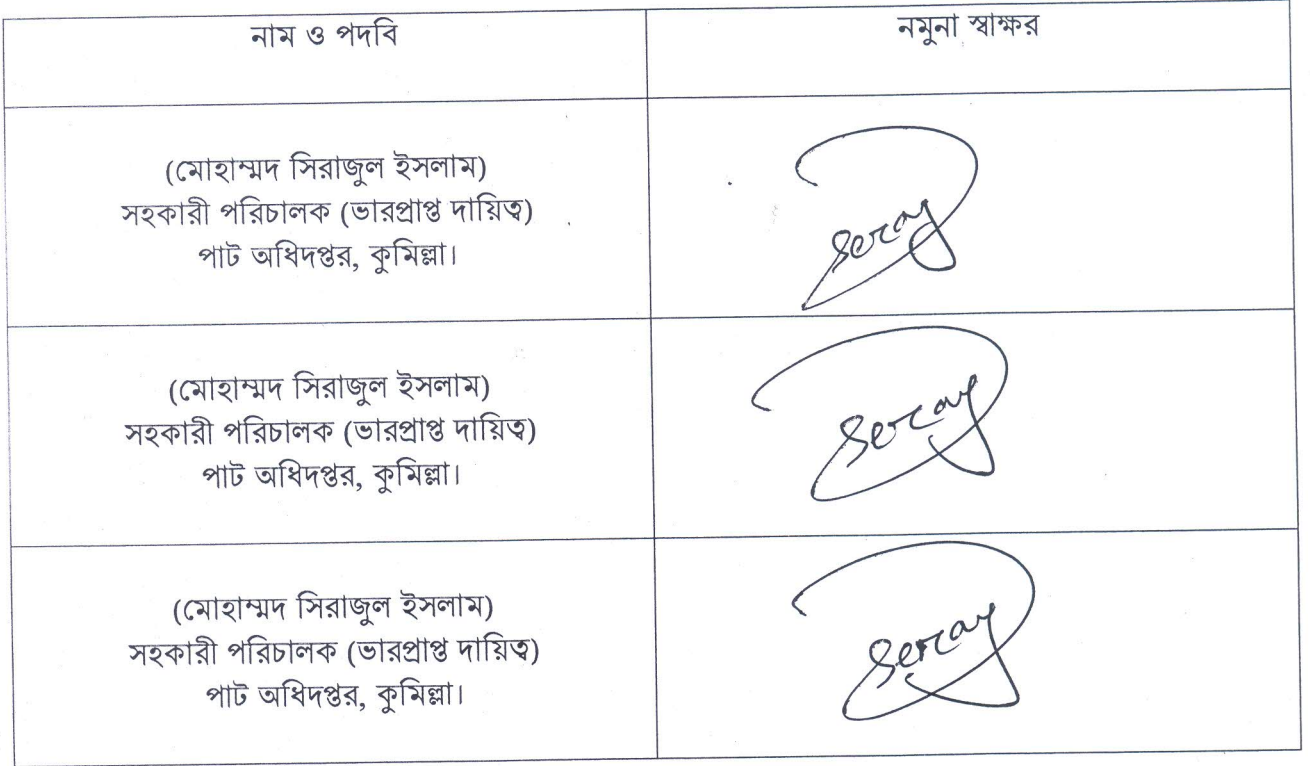 নাম ও পদবি
নমুনা স্বাক্ষর
(মোহাম্মদ সিরাজুল ইসলাম)
সহকারী পরিচালক (ভারপ্রাপ্ত দায়িত্ব)
পাট অধিদপ্তর, কুমিল্লা।
(মোহাম্মদ সিরাজুল ইসলাম)
সহকারী পরিচালক (ভারপ্রাপ্ত দায়িত্ব)
পাট অধিদপ্তর, কুমিল্লা।
(মোহাম্মদ সিরাজুল ইসলাম)
সহকারী পরিচালক (ভারপ্রাপ্ত দায়িত্ব)
পাট অধিদপ্তর, কুমিল্লা।